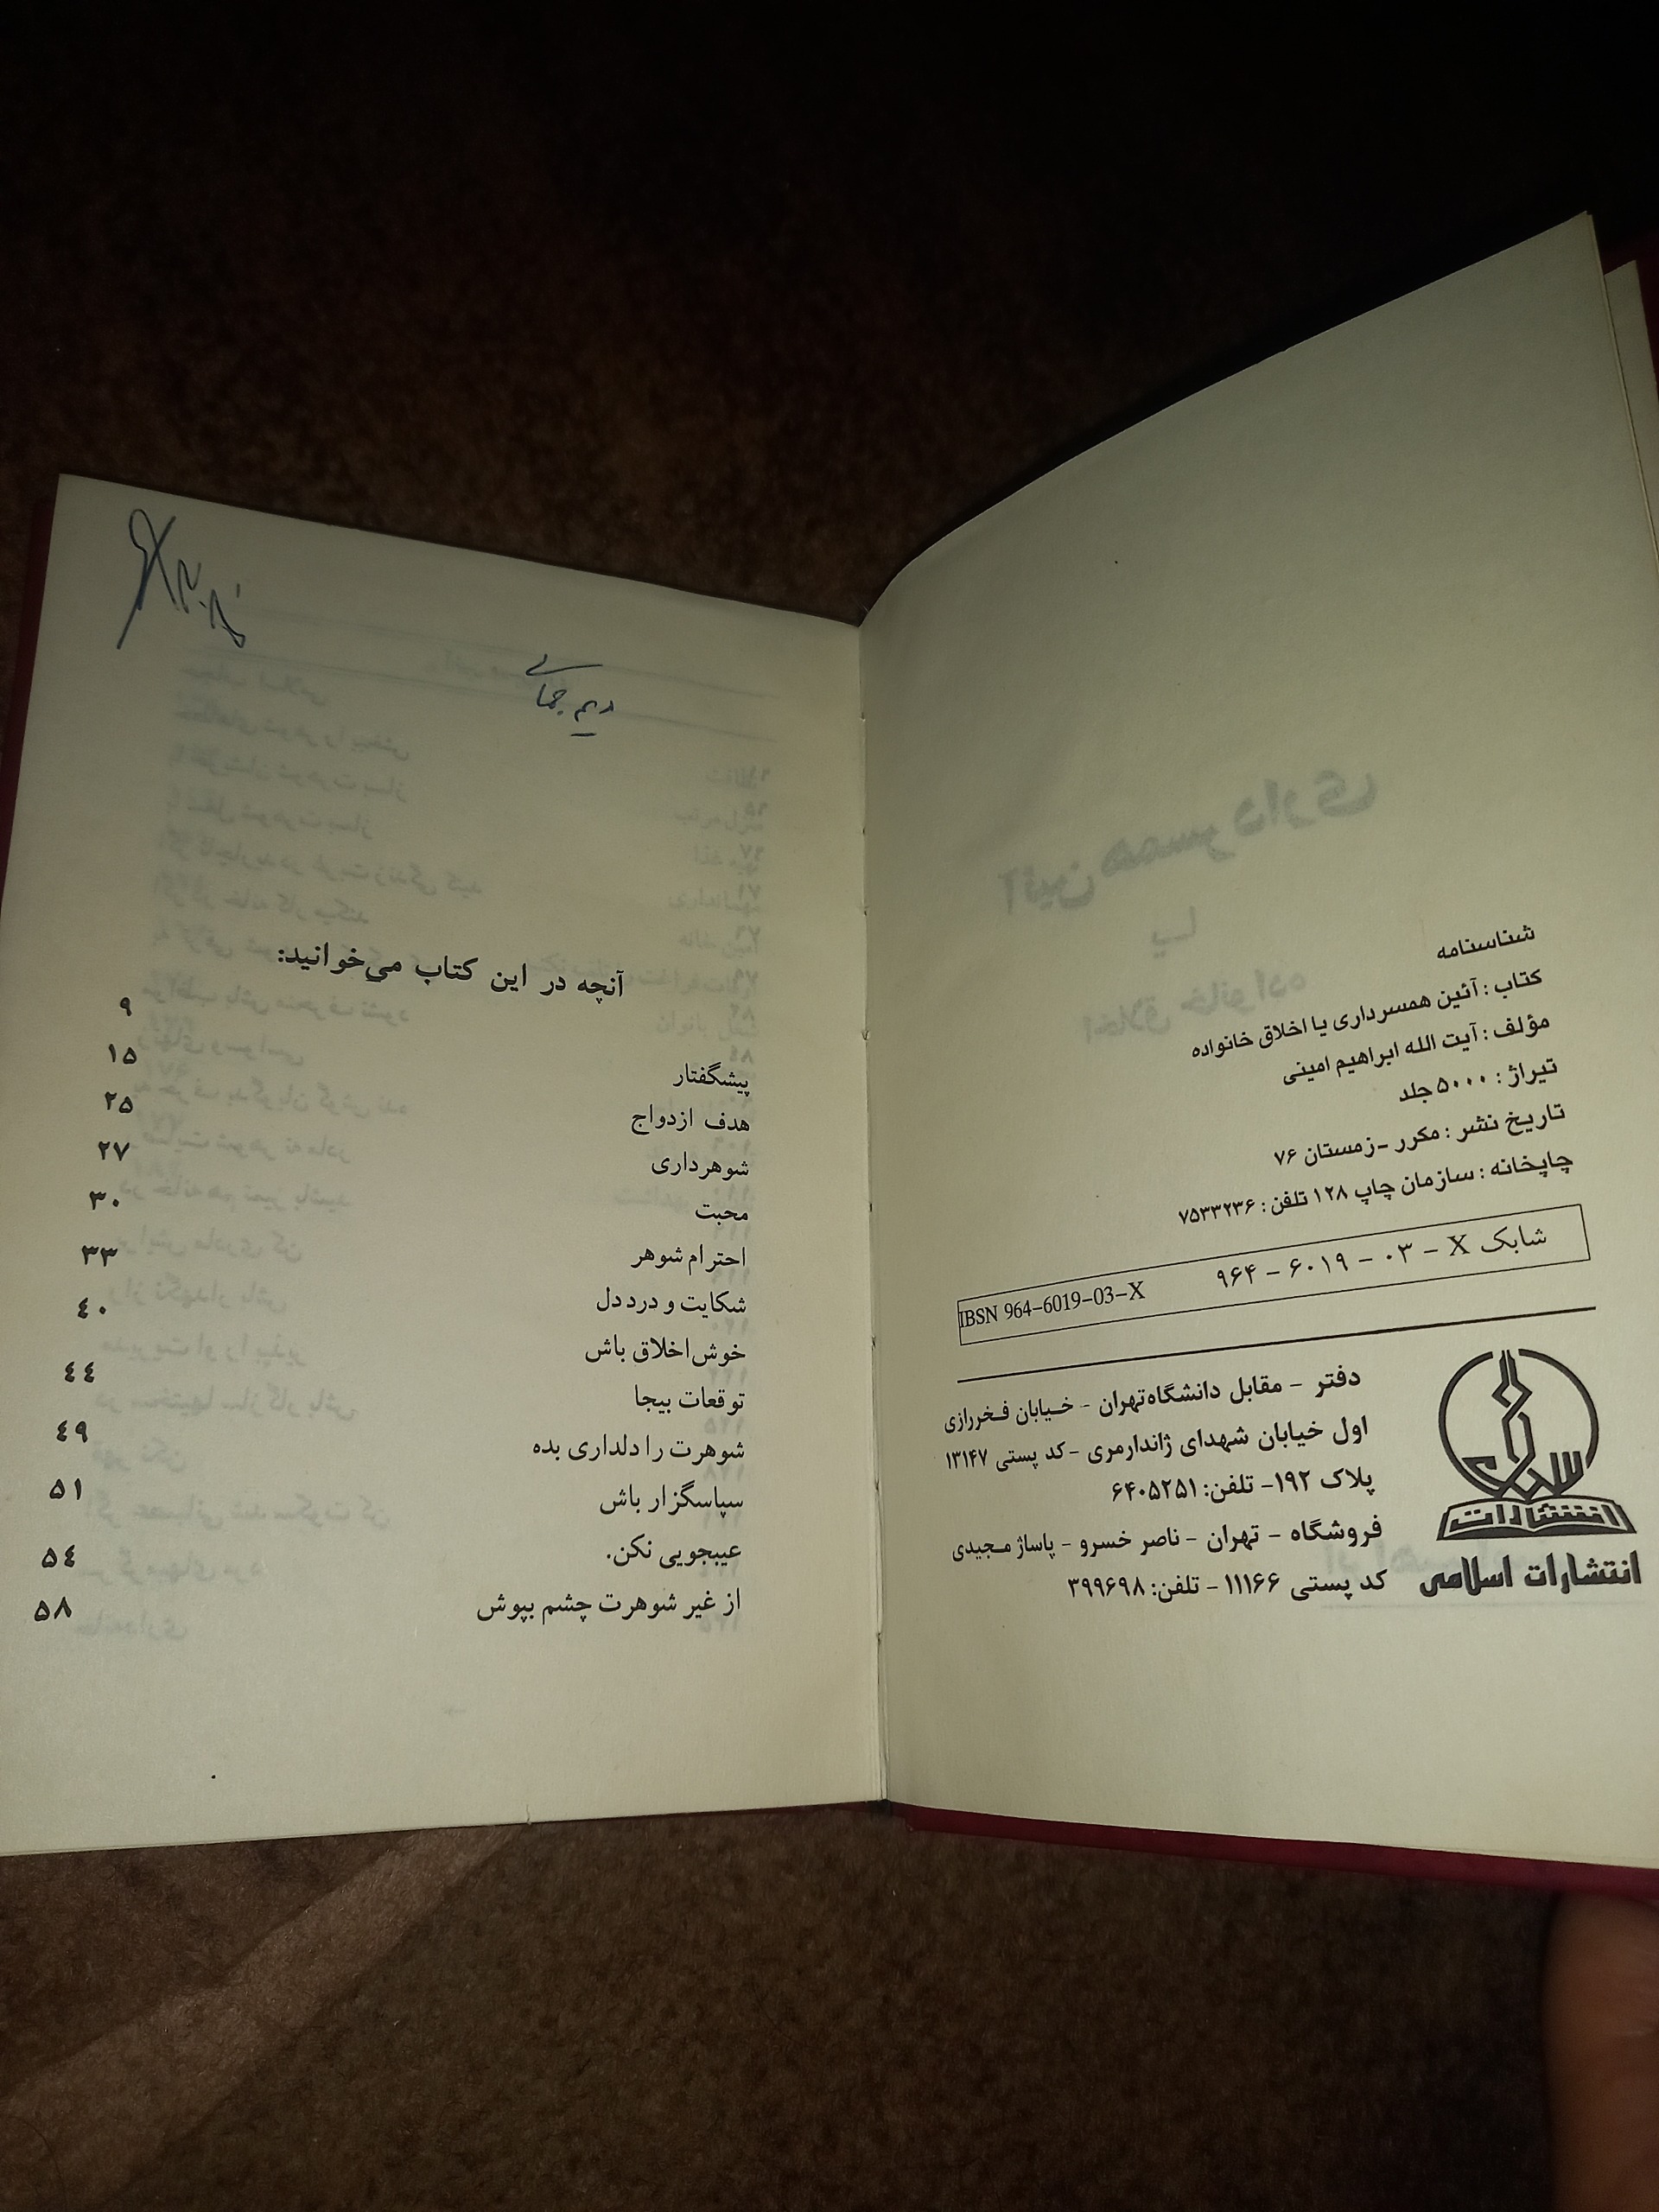 شناسنامه
کتاب : آئین همسرداری یا اخلاق خانواده
مؤلف : آیت الله ابراهیم امینی
تیراژ : ۵۰۰۰ جلد
تاریخ نشر : مکرر - زمستان ۷۶
چاپخانه : سازمان چاپ ۱۲۸ تلفن : ۷۵۳۳۲۳۶
شابک X - ۰۳ - ۶۰۱۹ - ۹۶۴
IBSN 964-6019-03-X
دفتر - مقابل دانشگاه تهران - خیابان فخررازی
اول خیابان شهدای ژاندارمری - کد پستی ۱۳۱۴۷
پلاک ۱۹۲- تلفن: ۶۴۰۵۲۵۱
فروشگاه - تهران - ناصر خسرو - پاساژ مجیدی
کد پستی ۱۱۱۶۶ - تلفن: ۳۹۹۶۹۸
انتشارات
انتشارات اسلامی
آنچه در این کتاب می‌خوانید:
پیشگفتار ۹
هدف ازدواج ۱۵
شوهرداری ۲۵
محبت ۲۷
احترام شوهر ۳۰
شکایت و درد دل ۳۳
خوش‌اخلاق باش ۴۰
توقعات بیجا ۴۴
شوهرت را دلداری بده ۴۹
سپاسگزار باش ۵۱
عیبجویی نکن. ۵۴
از غیر شوهرت چشم بپوش ۵۸